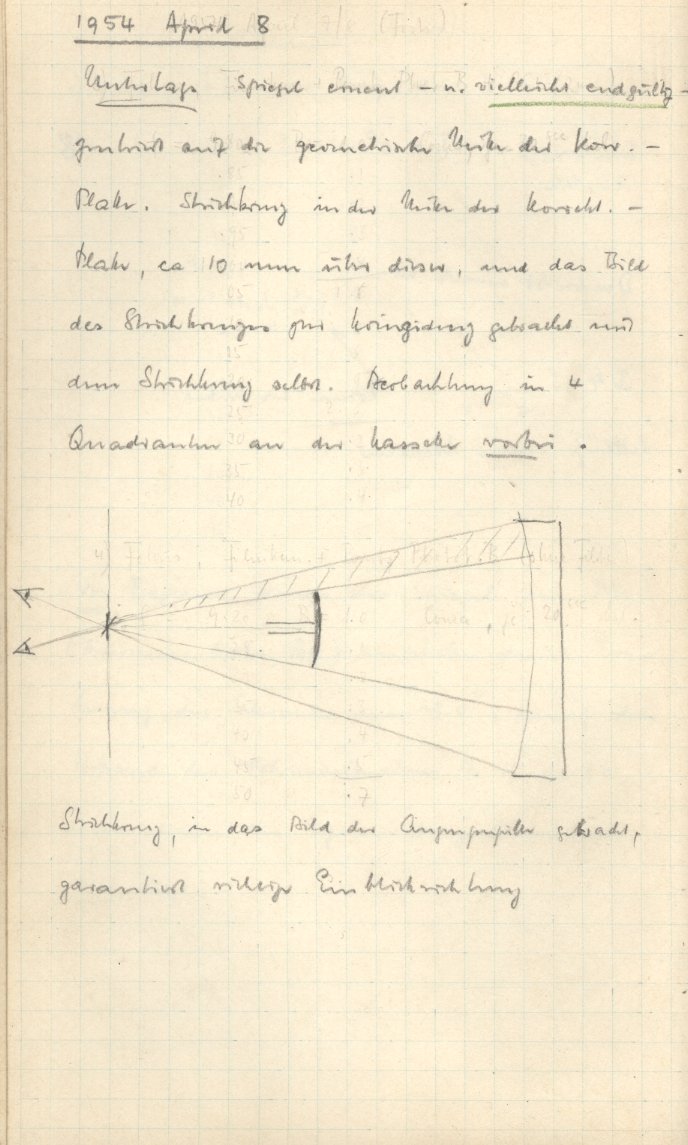 1954 April 8
Unterlage Spiegel erneut – u. vielleicht endgültig –
zentriert auf die geometrische Mitte der Korr. –
Platte. Strichkreuz in der Mitte der Korrekt. –
Platte, ca 10 mm über dieser, und das Bild
des Strichkreuzes zur Koinzidenz gebracht mit
dem Strichkreuz selbst. Beobachtung in 4
Quadranten an der Kassette vorbei.
Strichkreuz, in das Bild der Augenpupille gebracht,
garantiert richtige Einblickrichtung